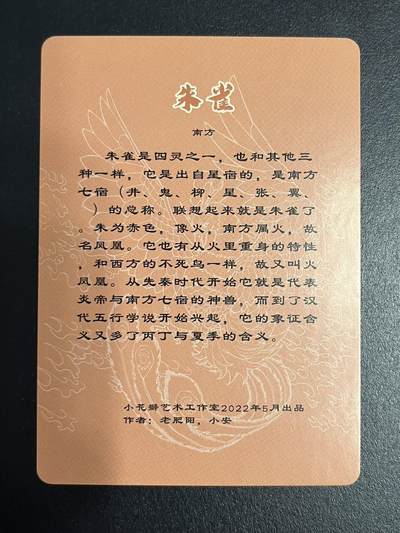 朱雀
南方
朱雀是四灵之一，也和其他三
种一样，它是出自星宿的，是南方
七宿（井、鬼、柳、星、张、翼、
）的总称。联想起来就是朱雀了
。朱为赤色，像火，南方属火，故
名凤凰。它也有从火里重身的特性
，和西方的不死鸟一样，故又叫火
凤凰。从先秦时代开始它就是代表
炎帝与南方七宿的神兽，而到了汉
代五行学说开始兴起，它的象征含
义又多了丙丁与夏季的含义。
小花瓣艺术工作室2022年5月出品
作者：老肥阳，小安